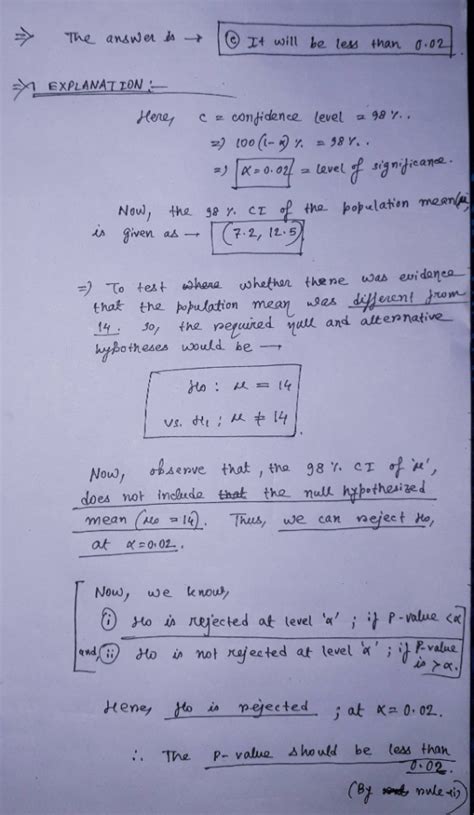 ⇒ The answer is → ⓒ It will be less than 0.02
⇒ EXPLANATION :-
Here, c = confidence level = 98 %.
⇒ 100(1-α) % = 98 %.
⇒ α = 0.02 = level of significance.
Now, the 98 % CI of the population mean μ,
is given as → (7.2, 12.5)
⇒ To test where whether there was evidence
that the population mean was different from
14. So, the required null and alternative
hypotheses would be →
H0 : μ = 14
vs. H1 ; μ ≠ 14
Now, observe that, the 98 % CI of 'μ',
does not include that the null hypothesized
mean (μ0 = 14). Thus, we can reject H0,
at α = 0.02.
Now, we know,
ⓘ H0 is rejected at level 'α' ; if P-value <α
and, ⓘⓘ H0 is not rejected at level 'α' ; if P-value
is >α.
Here, H0 is rejected ; at α = 0.02.
∴ The P-value should be less than
0.02.
(By rule-(i))